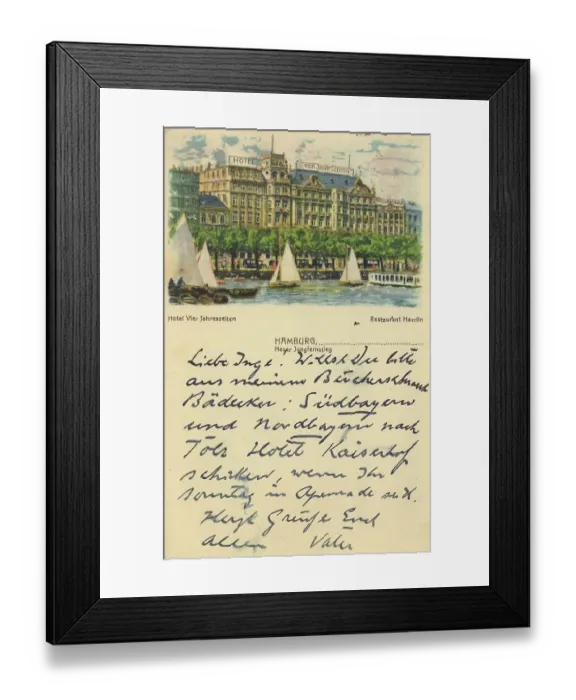 HOTEL
VIER JAHRESZEITEN
Hotel Vier Jahreszeiten
Restaurant Haerlin
HAMBURG,
Neuer Jungfernstieg
Liebe Inge! Willst Du bitte
aus meinem Bücherschrank
Bädecker: Südbayern
und Nordbayern nach
Tölz Hotel Kaiserhof
schicken, wenn Ihr
Sonntag in seid.
Herzl Grüße Euch
Allen Vater